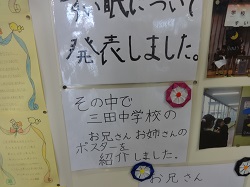 眼について
発表しました。
その中で
三田中学校の
お兄さん お姉さんの
ポスターを
紹介しました。
お兄さん
学校